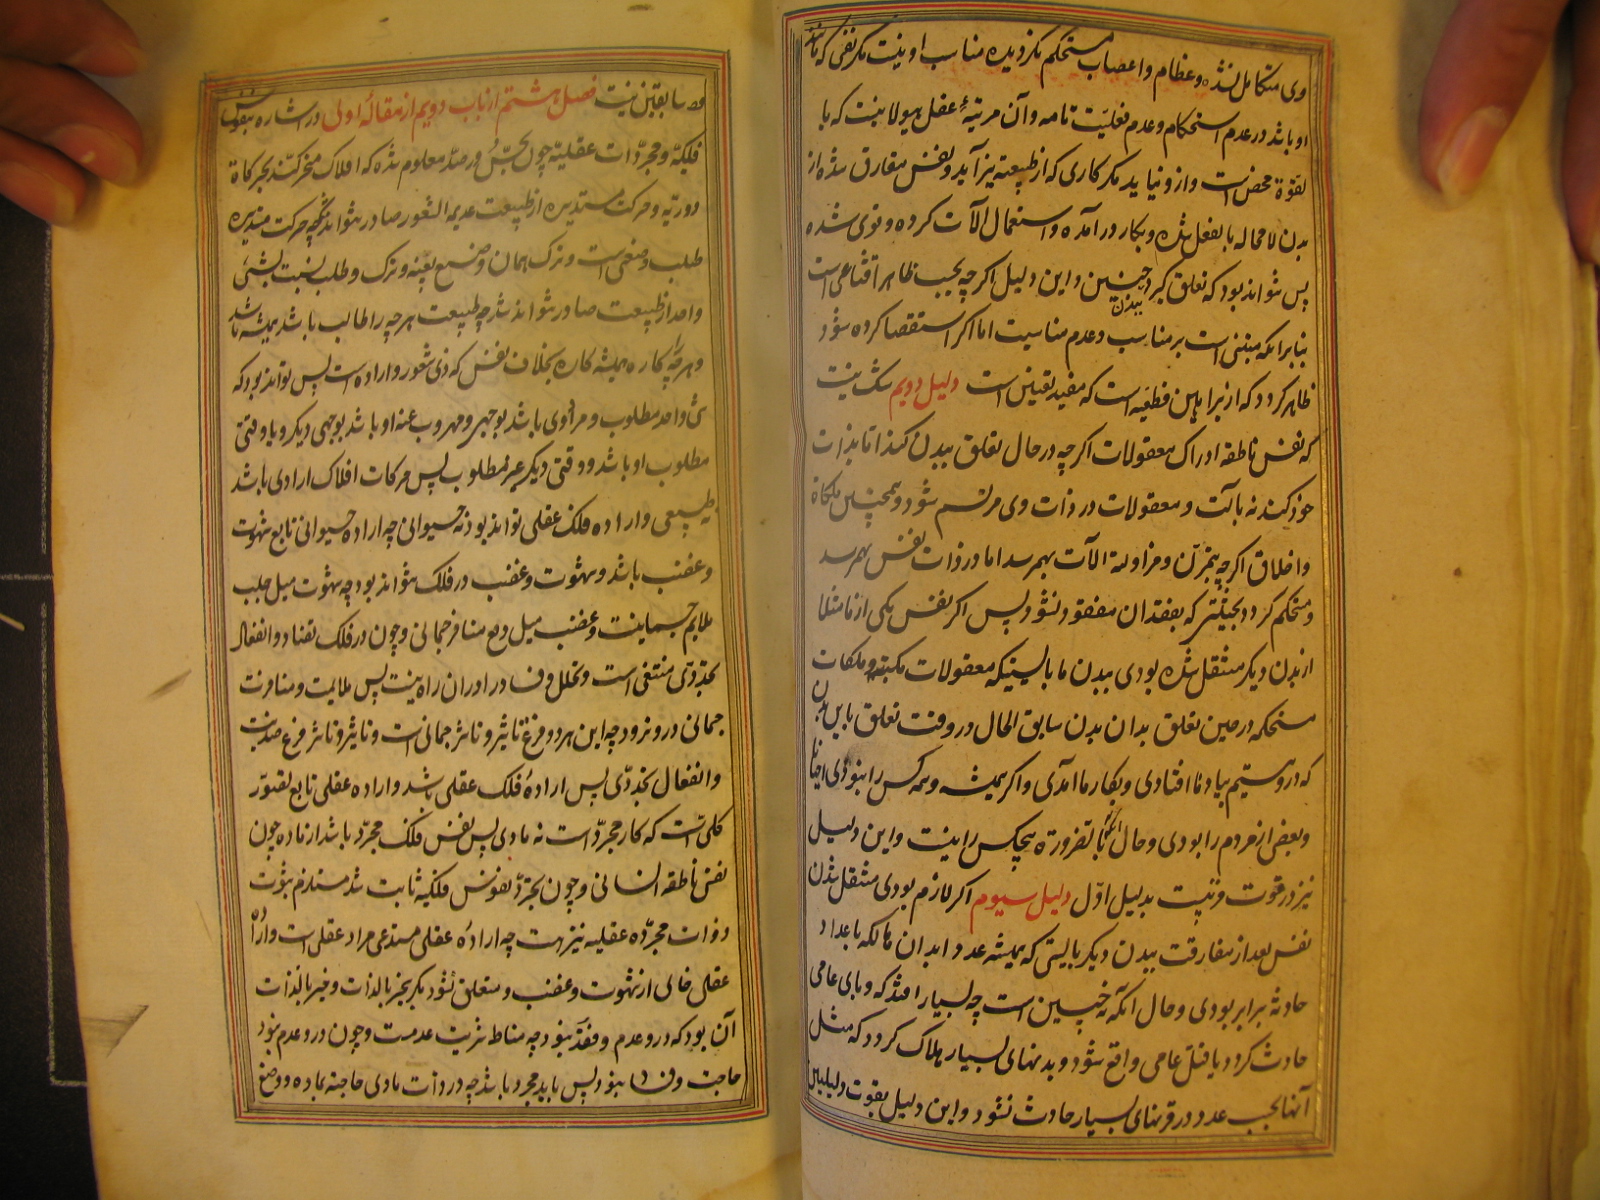 وی متکامل نشده و عظام و اعصاب مستحکم نگردیده مناسب او نیست مگر نفسی که مانند
او باشد در عدم استحکام و عدم فعلیّت تامه و آن مرتبهٔ عقل هیولانیست که با
لقوة محض است و ازو نیاید مگر کاری که از طبیعة نیز آید و نفس مفارق شده از
بدن لا محاله بالفعل شده و بکار درآمده و استعمال الآت کرده و قوی شده
پس نتواند بود که تعلق گیرد ببدن جنین و این دلیل اگرچه بحسب ظاهر اقناعی است
بنابرانکه مبتنی است بر مناسبت و عدم مناسبت اما اگر استقصا کرده شود
ظاهر گردد که از براهین قطعیه است که مفید یقین است دلیل دویم شک نیست
که نفس ناطقه ادراک معقولات اگرچه در حال تعلق ببدن کند اما بذات
خود کند نه بآلت و معقولات در ذات وی مرتسم شود و همچنین ملکاة
و اخلاق اگرچه بتمرّن و مزاولة الآت بهمرسد اما در ذات نفس بهمرسد
و مستحکم گردد بحیثیتی که بفقدان مفقود نشود پس اگر نفس یکی از ما مثلا
از بدن دیگر منتقل شده بودی ببدن ما بایستی که معقولات مکتسبه و ملکات
مستحکمه در حین تعلق بدان بدن سابق الحال در وقت تعلق باین بدن
که دروستیم بیاد ما افتادی و بکار ما آمدی و اگر همیشه و همه کس را نبودی احیانا
و بعضی از مردم را بودی و حال آنکه بالضرورة هیچکس را نیست و این دلیل
نیز در قوت قریبست بدلیل اوّل دلیل سیوم اگر لازم بودی منتقل شدن
نفس بعد از مفارقت ببدن دیگر بایستی که همیشه عدد ابدان هالکه با عداد
حادثه برابر بودی و حال آنکه نه چنین است چه بسیار افتد که وبای عامی
حادث گردد یا قتل عامی واقع شود و بدنهای بسیار هلاک گردد که مثل
آنها بحسب عدد در قرنهای بسیار حادث نشود و این دلیل بقوت دلیلین
سابقین نیست فصل هشتم از باب دویم از مقالهٔ اولی در اشاره بنفوس
فلکیّه و مجرّدات عقلیّه چون بحسّ و رصد معلوم شده که افلاک متحرکند بحرکاة
دوریّه و حرکت مستدیره از طبیعت عدیمه الشعور صادر نتواند شد چه حرکت مستدیره
طلب وضعی است و ترک همان وضع بعینه و ترک و طلب بنسبت بشئ
واحد از طبیعت صادر نتواند شد چه طبیعت هرچه را طالب باشد همیشه طالب باشد
و هرچه را کاره همیشه کاره بخلاف نفس که ذی شعور و اراده است پس تواند بود که
شئ واحد مطلوب و مراد وی باشد بوجهی و مهروب عنه او باشد بوجهی دیگر و یا وقتی
مطلوب او باشد و وقتی دیگر غیر مطلوب پس حرکات افلاک ارادی باشد
طبیعی و اراده فلک عقلی تواند بود نه حیوانی چه اراده حیوانی تابع شهوت
و غضب باشد و شهوت و غضب در فلک نتواند بود چه شهوت میل جلب
ملایم جسمانیست و غضب میل دفع منافر جسمانی و چون در فلک تضاد و انفعال
تجدّدی منتفی است و تحلل و فساد را در ان راه نیست پس ملایمت و منافرت
جسمانی درو نرود چه این هر دو فرع تأثیر و تأثر جسمانی است و تأثیر و تأثر فرع ضدیت
و انفعال تجدّدی پس ارادهٔ فلک عقلی باشد و اراده عقلی تابع تصوّر
کلّی است که کار مجرّد است نه مادی پس نفس فلک مجرّد باشد از ماده چون
نفس ناطقه انسانی و چون تجرّد نفوس فلکیّه ثابت شد مستلزم ثبوت
ذوات مجرّده عقلیه نیز هست چه ارادهٔ عقلی مستدعی مراد عقلی است و ارادهٔ
عقلی خالی از شهوت و غضب و متعلق نشود مگر بخیر بالذات و خیر بالذات
آن بود که درو عدم و فقد نبود چه مناط شریت عدمست و چون درو عدم نبود
حاجت و فساد نبود پس باید مجرد باشد چه در ذات مادی حاجت بماده و وضع